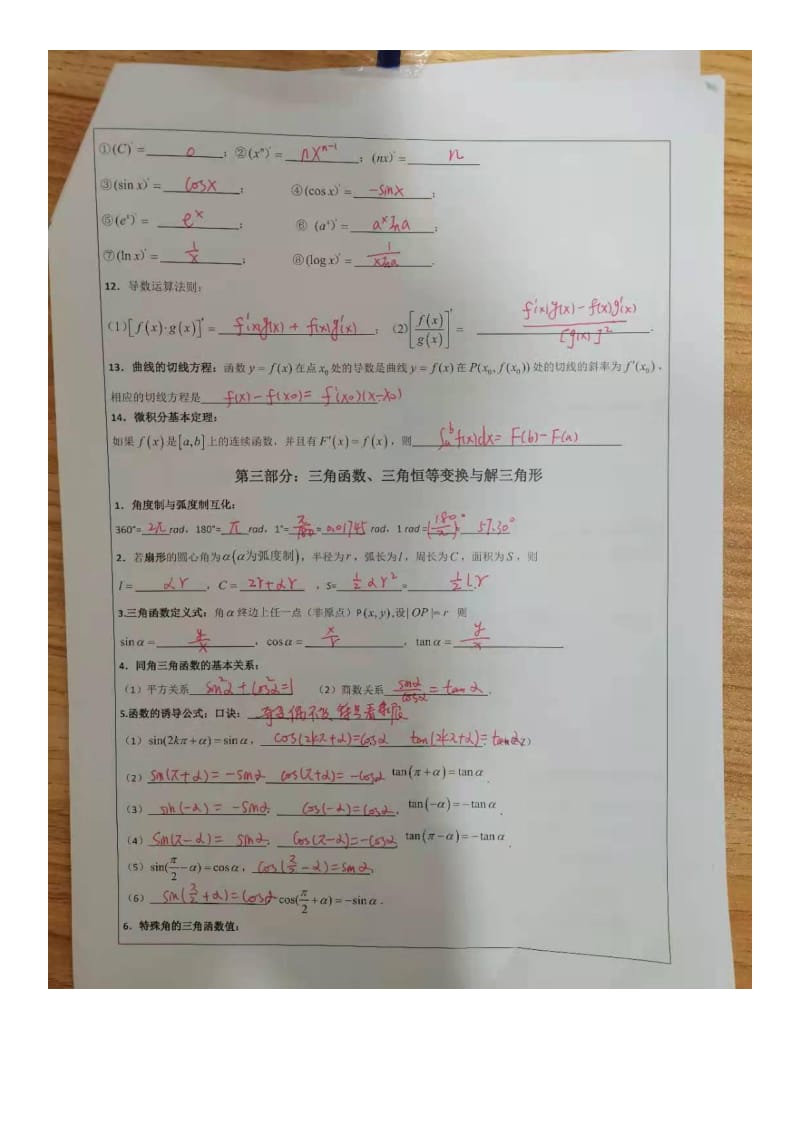 ①(C)'= 0 ; ②(xⁿ)'= nxⁿ⁻¹ ; (nx)'= n
③(sin x)'= cosx ; ④(cos x)'= -sinx ;
⑤(eˣ)'= eˣ ; ⑥ (aˣ)'= aˣlna ;
⑦(ln x)'= 1/x ; ⑧(log x)'= 1/xlna .
12. 导数运算法则:
(1)[f(x)·g(x)]'= f'(x)g(x)+f(x)g'(x) ; (2)[f(x)/g(x)]'= f'(x)g(x)-f(x)g'(x)/[g(x)]² .
13. 曲线的切线方程:函数 y=f(x)在点x₀处的导数是曲线 y=f(x)在P(x₀,f(x₀))处的切线的斜率为f'(x₀),
相应的切线方程是 f(x)-f(x₀)=f'(x₀)(x-x₀)
14. 微积分基本定理:
如果 f(x)是[a,b]上的连续函数,并且有F'(x)=f(x),则 ∫ₐᵇf(x)dx=F(b)-F(a)
第三部分:三角函数、三角恒等变换与解三角形
1. 角度制与弧度制互化:
360°= 2π rad, 180°= π rad, 1°= π/180 = 0.01745 rad, 1 rad=(180/π)° 57.30°
2. 若扇形的圆心角为α(α为弧度制),半径为r,弧长为l,周长为C,面积为S,则
l= αr , C= 2r+αr , S= ½αr² = ½lr
3.三角函数定义式:角α终边上任一点(非原点)P(x,y),设|OP|=r 则
sinα= y/x , cosα= x/r , tanα= y/x
4. 同角三角函数的基本关系:
(1)平方关系 sin²α+cos²α=1 (2)商数关系 sinα/cosα=tanα .
5.函数的诱导公式:口诀: 奇变偶不变 符号看象限
(1)sin(2kπ+α)=sinα, cos(2kπ+α)=cosα tan(2kπ+α)=tanα Z)
(2) sin(π+α)=-sinα cos(π+α)=-cosα tan(π+α)=tanα.
(3) sin(-α)=-sinα , cos(-α)=cosα, tan(-α)=-tanα
(4) sin(π-α)=sinα, cos(π-α)=-cosα tan(π-α)=-tanα.
(5)sin(π/2-α)=cosα, cos(π/2-α)=sinα.
(6) sin(π/2+α)=cosα cos(π/2+α)=-sinα.
6. 特殊角的三角函数值: